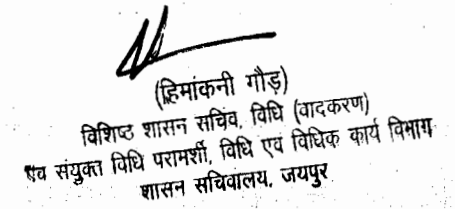 (हिमांकनी गौड़)
विशिष्ट शासन सचिव, विधि (वादकरण)
एवं संयुक्त विधि परामर्शी, विधि एवं विधिक कार्य विभाग
शासन सचिवालय, जयपुर